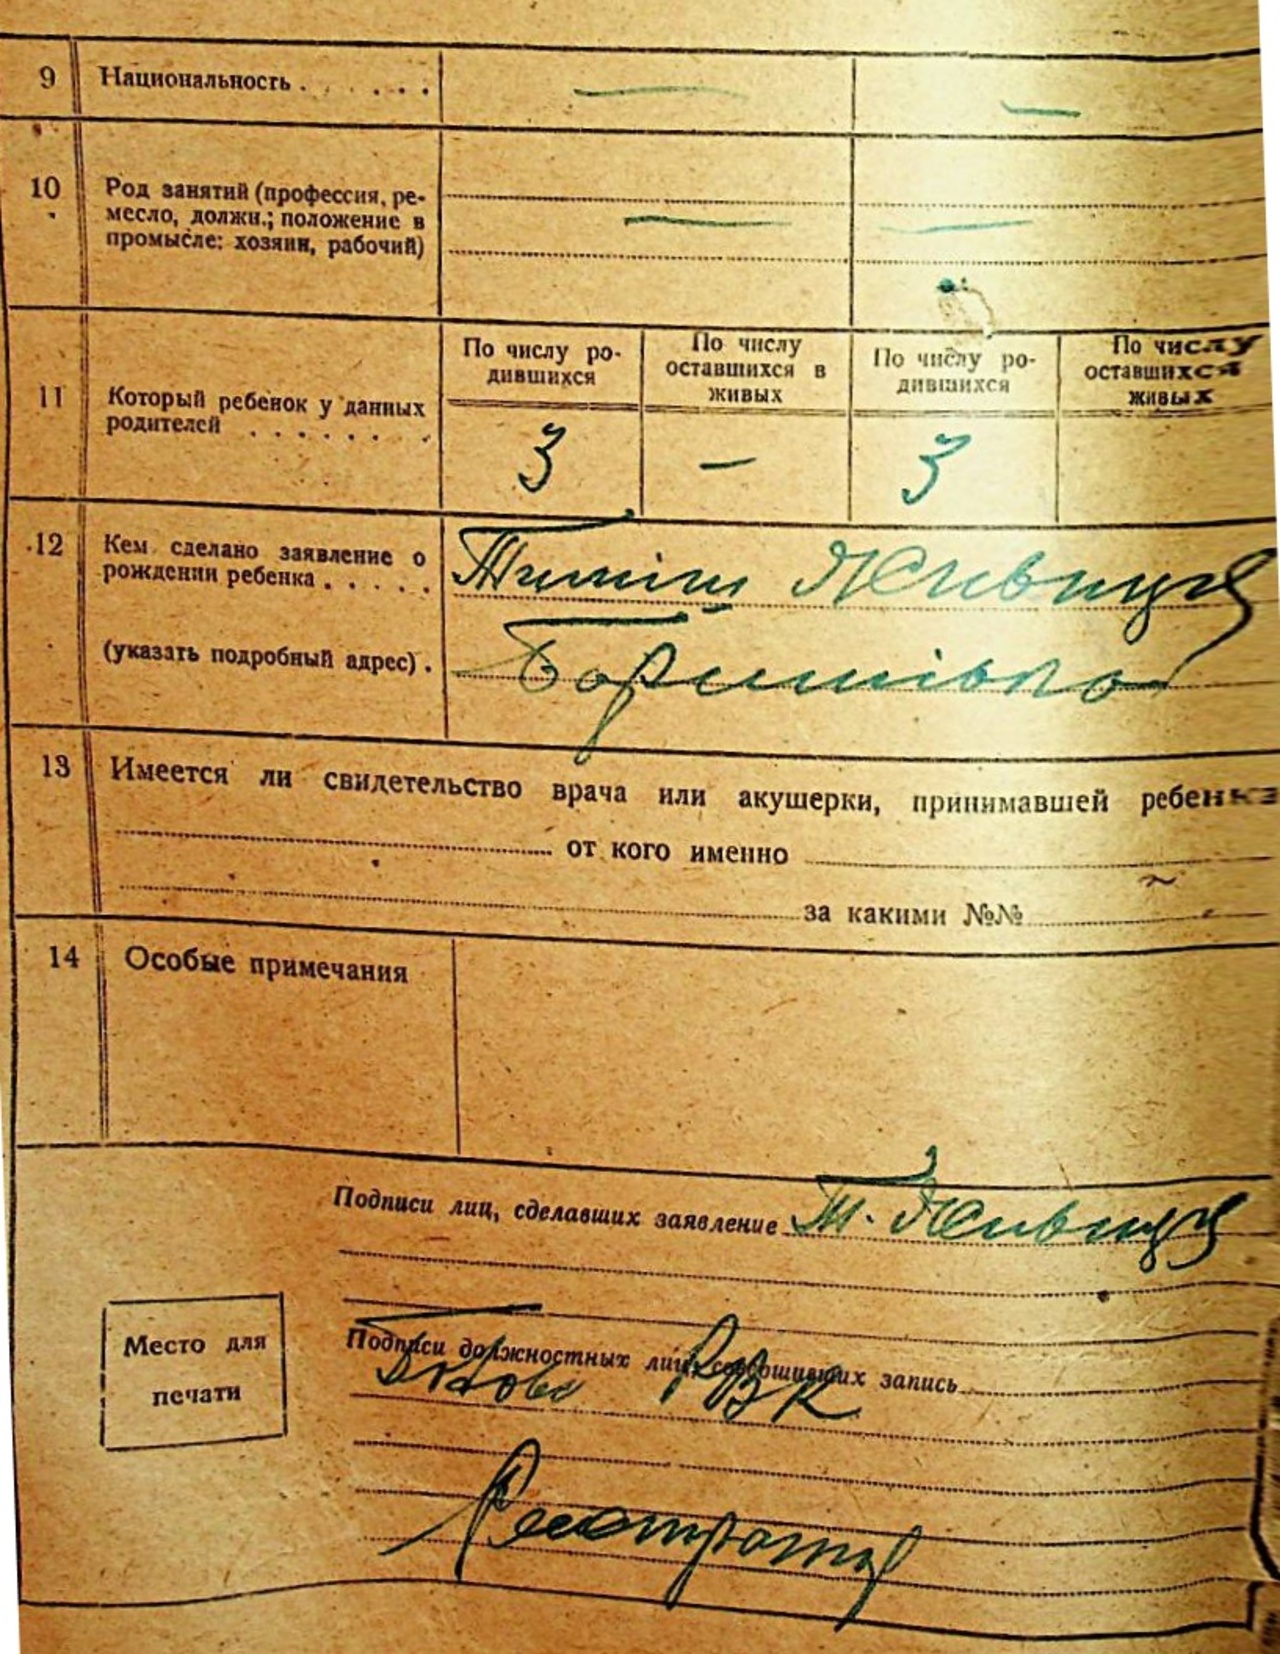 9 Национальность . . . . . . — —
10 Род занятий (профессия, ре-
месло, должн.; положение в
промысле: хозяин, рабочий) — —
11 Который ребенок у данных
родителей . . . . . . .
По числу ро-
дившихся
По числу
оставшихся в
живых
По числу ро-
дившихся
По числу
оставшихся
живых
3 — 3
12 Кем сделано заявление о
рождении ребенка . . . . .
Тиміш
(указать подробный адрес) .
13 Имеется ли свидетельство врача или акушерки, принимавшей ребенка
от кого именно
за какими №№
14 Особые примечания
Подписи лиц, сделавших заявление Т.
Подписи должностных лиц, совершивших запись
РВК
Место для
печати